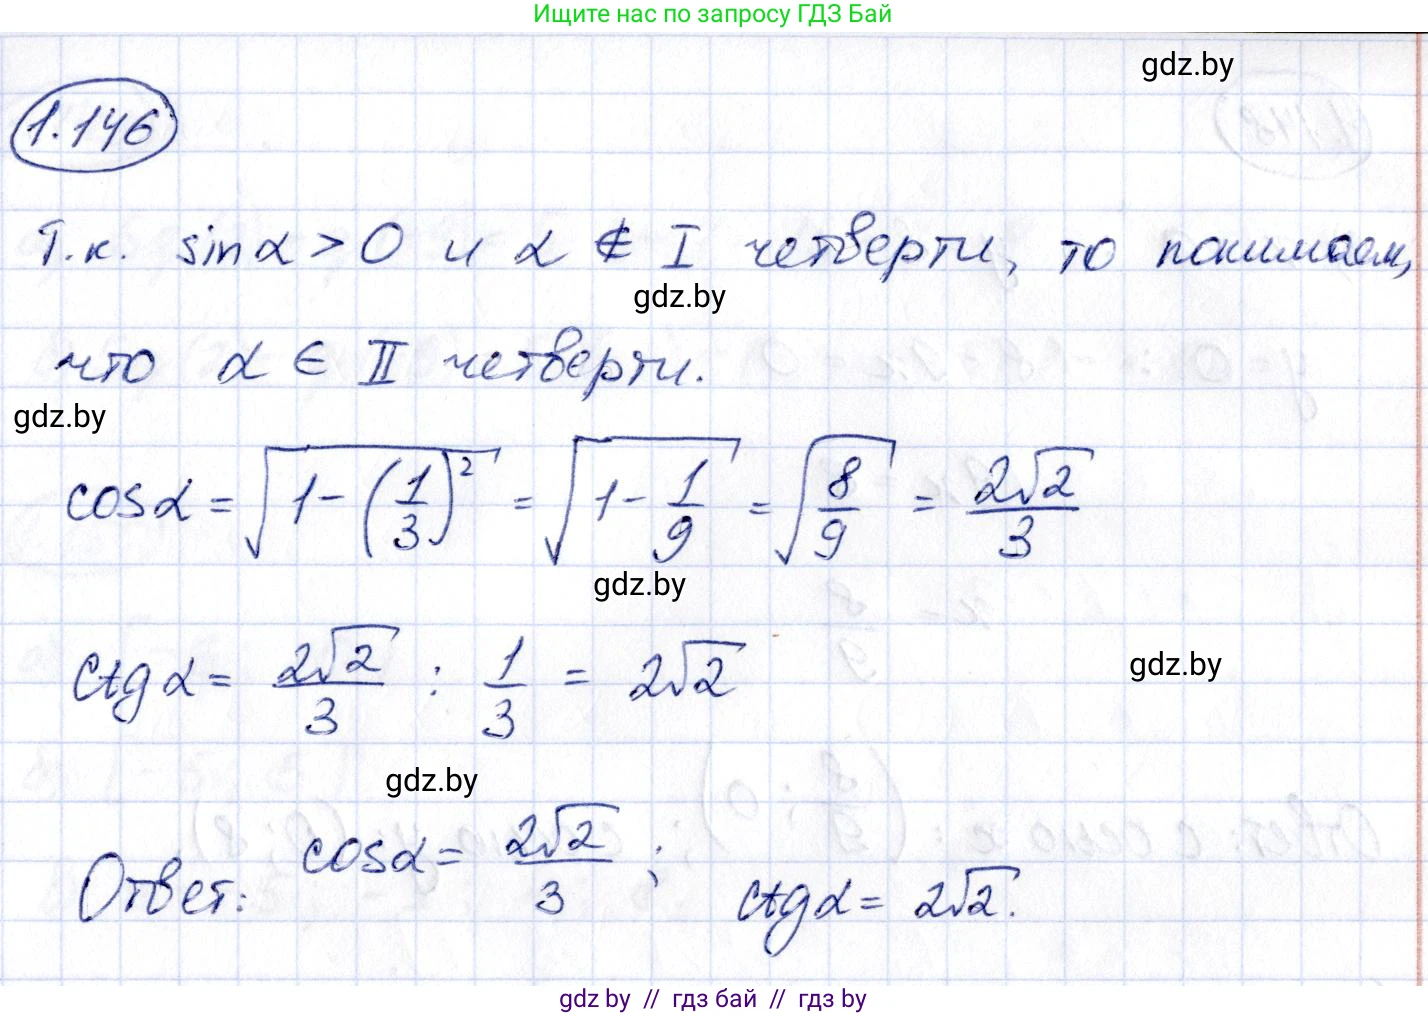 Ищите нас по запросу ГДЗ Бай
gdz.by
1.146
Т.к. sinα > 0 и α ∉ I четверти, то понимаем,
gdz.by
что α ∈ II четверти.
gdz.by
cosα = √(1 - (1/3)²) = √(1 - 1/9) = √(8/9) = 2√2/3
gdz.by
ctgα = 2√2/3 : 1/3 = 2√2
gdz.by
gdz.by
Ответ: cosα = 2√2/3 ; ctgα = 2√2.
gdz by // гдз бай // гдз by